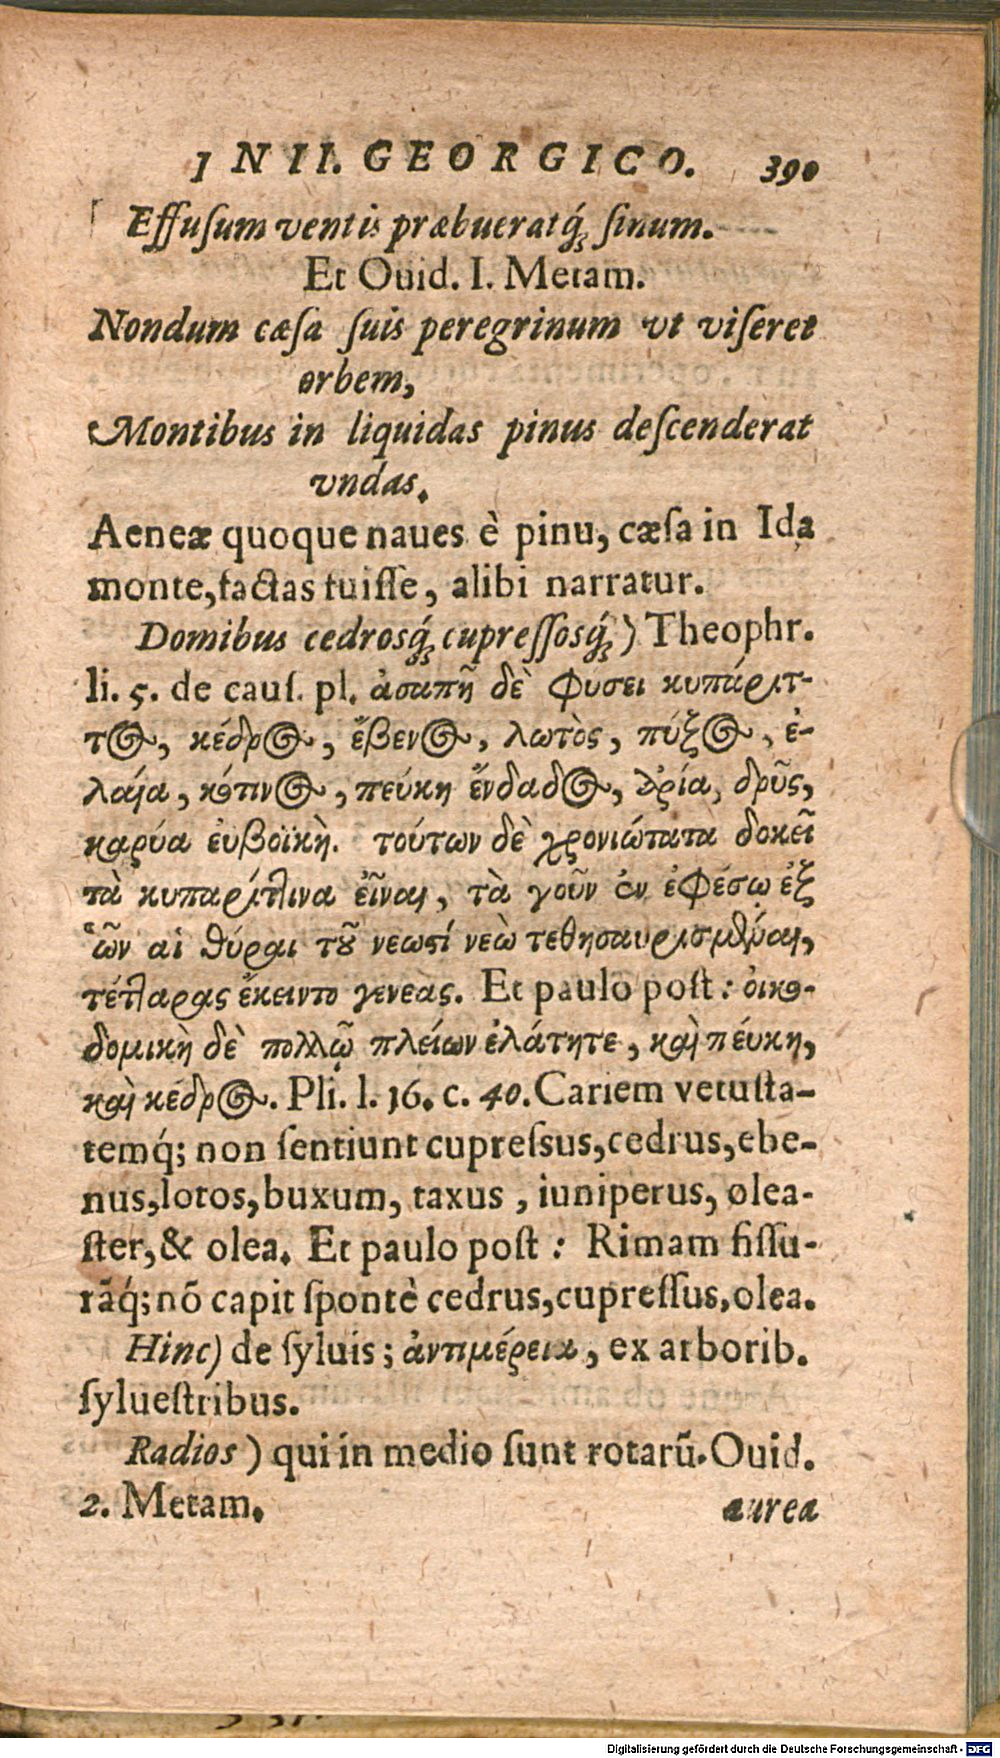 IN II. GEORGICO. 390
Effusum ventis præbueratq́; sinum.
Et Ouid. I. Metam.
Nondum cæsa suis peregrinum vt viseret
orbem,
Montibus in liquidas pinus descenderat
vndas.
Aeneæ quoque naues è pinu, cæsa in Ida
monte, factas fuisse, alibi narratur.
Domibus cedrosq́; cupressosq́;) Theophr.
li. 5. de caus. pl. ἀσαπῆ δὲ φυσει κυπάριτ-
τος, κέδρος, ἔβενος, λωτὸς, πύξος, ἐ-
λαία, κότινος, πεύκη ἔνδαδος, ἀρία, δρῦς,
καρύα ἐυβοϊκὴ. τούτων δὲ χρονιώτατα δοκεῖ
τὰ κυπαρίττινα εἶναι, τὰ γοῦν ἐν ἐφέσῳ ἐξ
ὧν αἱ θύραι τοῦ νεωστί νεὼ τεθησαυρισμέναι,
τέτταρας ἔκειντο γενεάς. Et paulo post: οἰκο-
δομικὴ δὲ πολλῷ πλείων ἐλάτητε, καὶ πέυκη,
καὶ κέδρος. Pli. l. 16. c. 40. Cariem vetusta-
temq́; non sentiunt cupressus, cedrus, ebe-
nus, lotos, buxum, taxus, iuniperus, olea-
ster, & olea. Et paulo post: Rimam fissu-
rāq́; nō capit spontè cedrus, cupressus, olea.
Hinc) de syluis; ἀντιμέρεια, ex arborib.
syluestribus.
Radios) qui in medio sunt rotarū. Ouid.
2. Metam. aurea
Digitalisierung gefördert durch die Deutsche Forschungsgemeinschaft - DFG